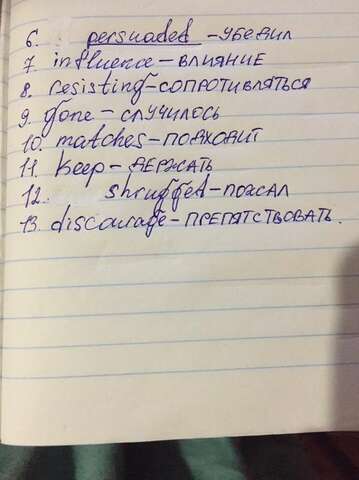 6. persuaded - УБЕДИЛ
7. influence - ВЛИЯНИЕ
8. resisting - СОПРОТИВЛЯТЬСЯ
9. gone - СЛУЧИЛОСЬ
10. matches - ПОДХОДИТ
11. keep - ДЕРЖАТЬ
12. shrugged - ПОЖАЛ
13. discourage - ПРЕПЯТСТВОВАТЬ.